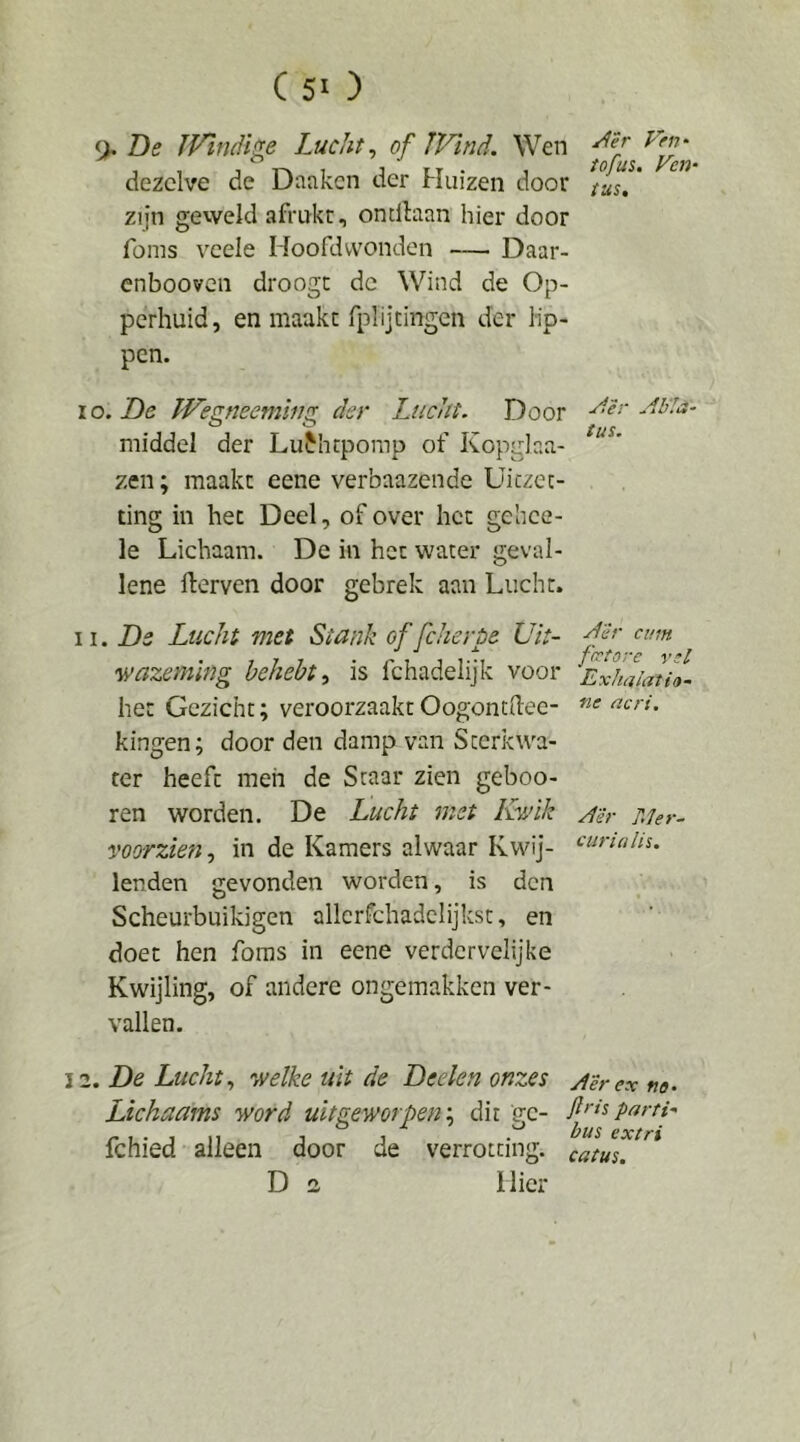 ( 51 )
9. De Windige Lucht, of Wind. Wen
dezelve de Daaken der Huizen door
zijn geweld afrukt, ontſtaan hier door
ſoms veele Hoofdwonden —— Daar-
enbooven droogt de Wind de Op-
perhuid, en maakt ſplijtingen der lip-
pen.
Aër Ven-
toſus. Ven-
tus.
10. De Wegneeming der Lucht. Door
middel der Luchtpomp of Kopglaa-
zen; maakt eene verbaazende Uitzet-
ting in het Deel, of over het gehee-
le Lichaam. De in het water geval-
lene ſterven door gebrek aan Lucht.
Aër Abla-
tus.
11. De Lucht met Stank of ſcherpe Uit-
wazeming behebt, is ſchadelijk voor
het Gezicht; veroorzaakt Oogontſtee-
kingen; door den damp van Sterkwa-
ter heeft men de Staar zien geboo-
ren worden. De Lucht met Kwik
voorzien, in de Kamers alwaar Kwij-
lenden gevonden worden, is den
Scheurbuikigen allerſchadelijkst, en
doet hen ſoms in eene verdervelijke
Kwijling, of andere ongemakken ver-
vallen.
Aër cum
fœtore vel
Exhalatio-
ne acri.
Aër Mer-
curialis.
12. De Lucht, welke uit de Deelen onzes
Lichaams word uitgeworpen; dit ge-
ſchied alleen door de verrotting.
Aër ex no-
ſtris parti-
bus extri
catus.
D 2 Hier